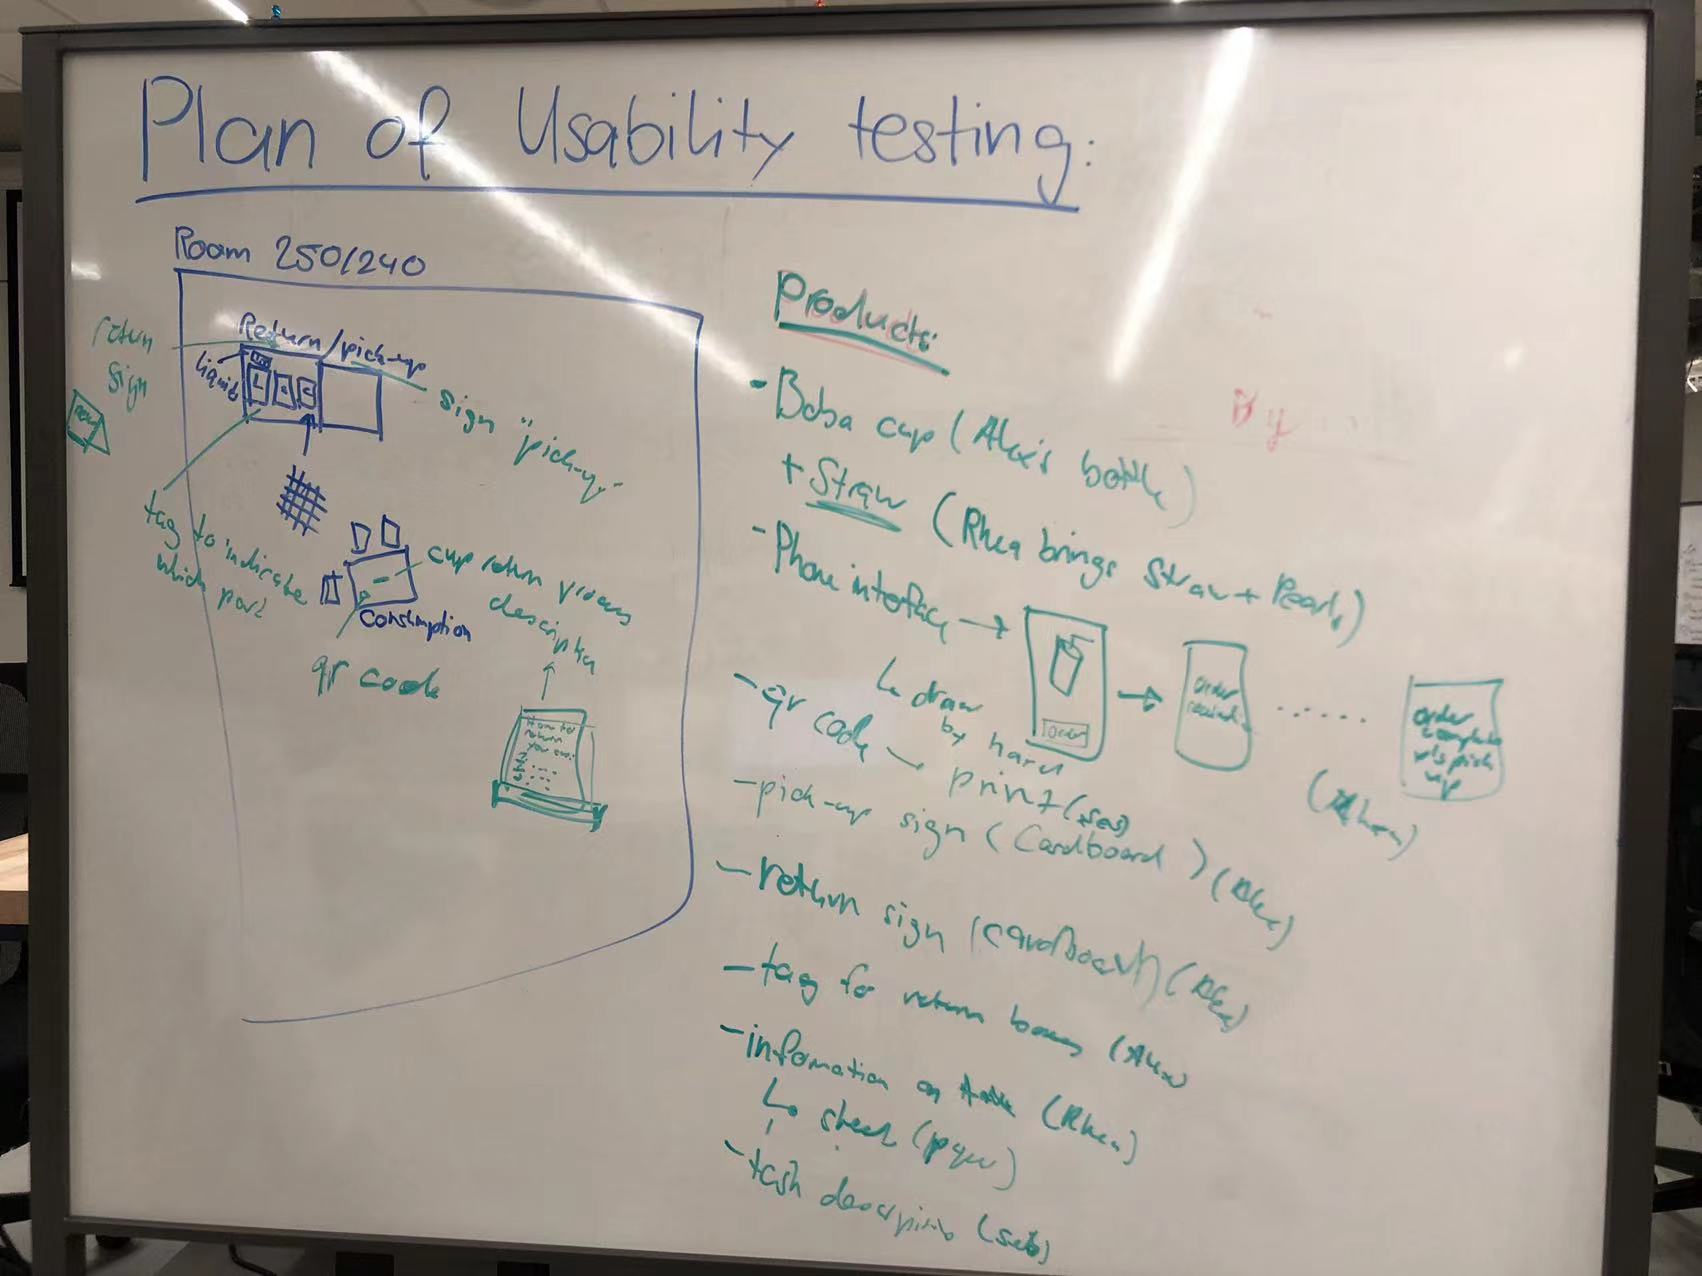 Plan of Usability testing:
Room 250/240
return
sign
Return/pick-up
liquid
sign "pick-up"
tag to indicate
which part
cup return
description
Consumption
qr code
How to
return
your cup:
Products:
- Boba cup (Alex's bottle)
+ Straw (Rhea brings Straw + Pearls)
- Phone interface →
order
→
order
received
......
order
complete
pls pick
up
↳ draw
by hand
(Rhea)
- qr code → print (seb)
- pick-up sign (Cardboard) (Alex)
- return sign (cardboard) (Alex)
- tag for return boxes (Alex)
- infomation on table (Rhea)
↳ sheet (paper)
- task description (seb)
By